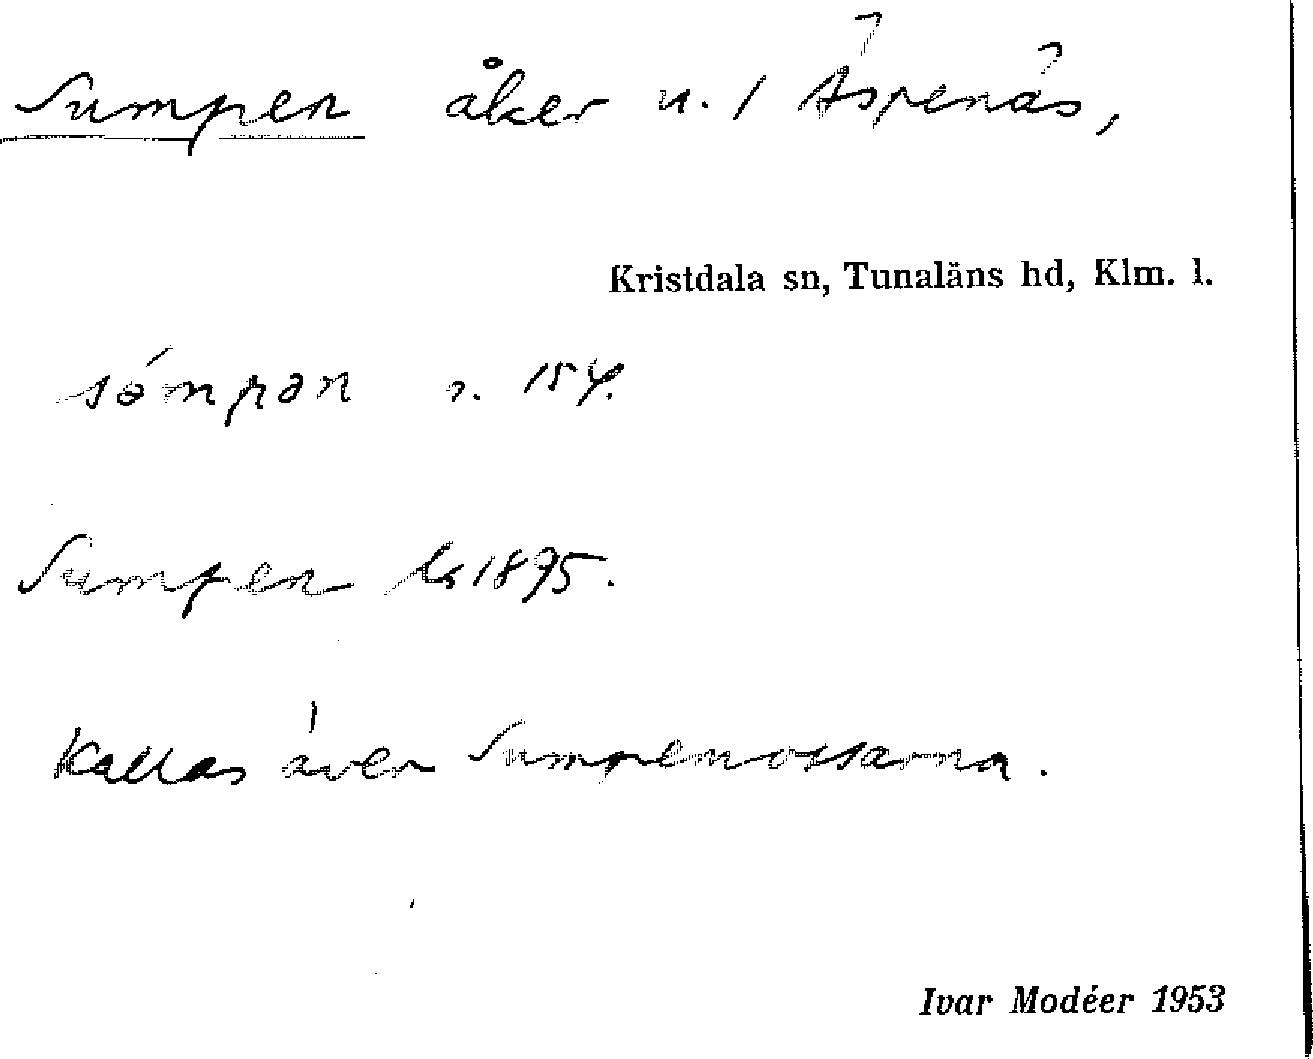 Sumpen åker n. 1 Äspenäs,
Kristdala sn, Tunaläns hd, Klm. l.
s. 154.
Sumpen Ls 1895.
Kallas även Sumpemossarna.
Ivar Modéer 1953